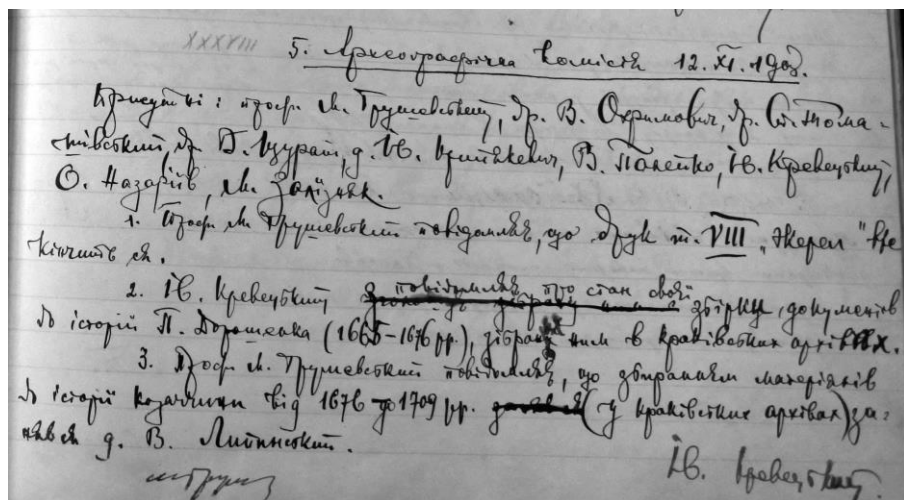 XXXVIII
5. Археографічна комісія 12. XI. 1908.
Присутні: проф. М. Грушевський, др. В. Охримович, др. Ст. Тома-
шівський, др. В. Щурат, д. Ів. Крипякевич, В. Панейко, Ів. Кревецький,
О. Назаріїв, М. Залізняк.
1. Проф. М. Грушевський повідомляє, що друк т. VIII „Жерел“ вже
кінчить ся.
2. Ів. Кревецький повідомляє про стан своєї збірки документів
до історії П. Дорошенка (1665–1676 рр.), зібраних ним в краківських архівах.
3. Проф. М. Грушевський повідомляє, що збиранням материялів
до історії козаччини від 1676 до 1709 рр. (у краківських архівах) за-
няв ся д. В. Липинський.
Ів. Кревецький